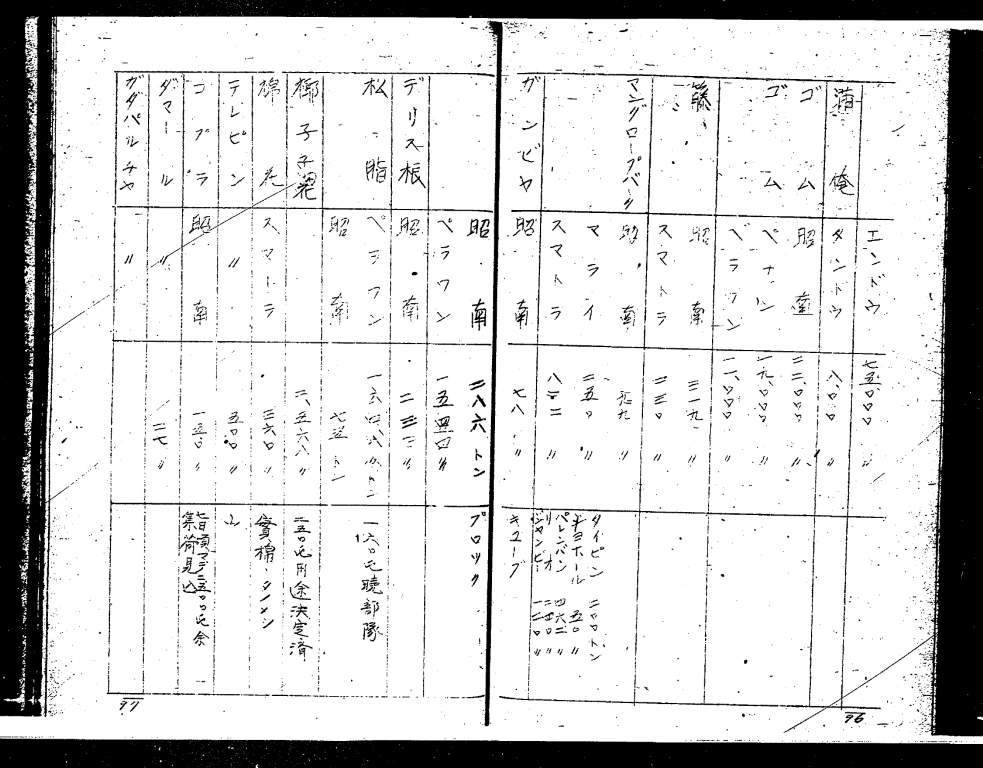 エンドウ 七五、〇〇〇 〃
蒲俺 タントウ 八、〇〇 〃
ゴム 昭南 二二、〇〇〇 〃
ゴム ペナン 一九、〇〇〇 〃
ベラワン 一一、〇〇〇
籐 昭南 三一九 〃
〃 スマトラ 三三〇 〃
マングローブバーク 昭南 〃
マライ 二五〇 〃 タイピン 二〇〇トン
ジョホール 五〇 〃
スマトラ 八三二 〃 パレンバン 四六二 〃
リオ 二五〇 〃
ジャンビー 一二〇 〃
ガンビヤ 昭南 七八 〃 キューブ
96
昭南 二八六トン ブロック
ベラワン 一五四四 〃
デリス根 昭南 二三三 〃
松脂 ベラワン トン 一六〇屯暁部隊
昭南 七五トン
椰子 二、五六八 〃 二五〇屯用途決定済
棉花 スマトラ 三六〇 〃 實棉、タンメン
テレピン 〃 五〇〇 〃
コプラ 昭南 一五〇 〃 七日頃マデ二五〇〇屯余
集荷見込
ダマール 〃 二七 〃
ガダパルチャ 〃
97